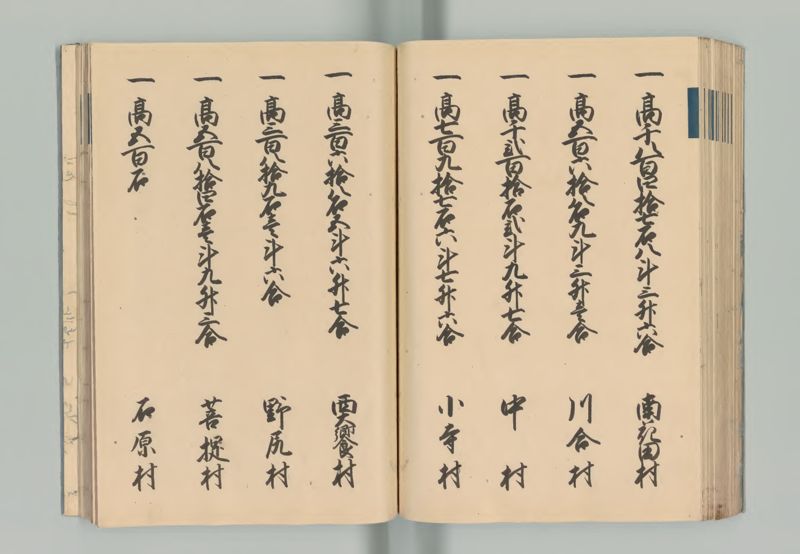 一 高千九百四拾七石八斗三升六合 南花田村
一 高五百六拾八石九斗三升壱合 川合村
一 高千弐百拾石弐斗九升七合 中村
一 高七百九拾七石六斗七升六合 小寺村
一 高三百六拾八石五斗六升七合 西大饗村
一 高三百八拾九石壱斗六合 野尻村
一 高五百八拾四石壱斗九升三合 菩提村
一 高五百石 石原村